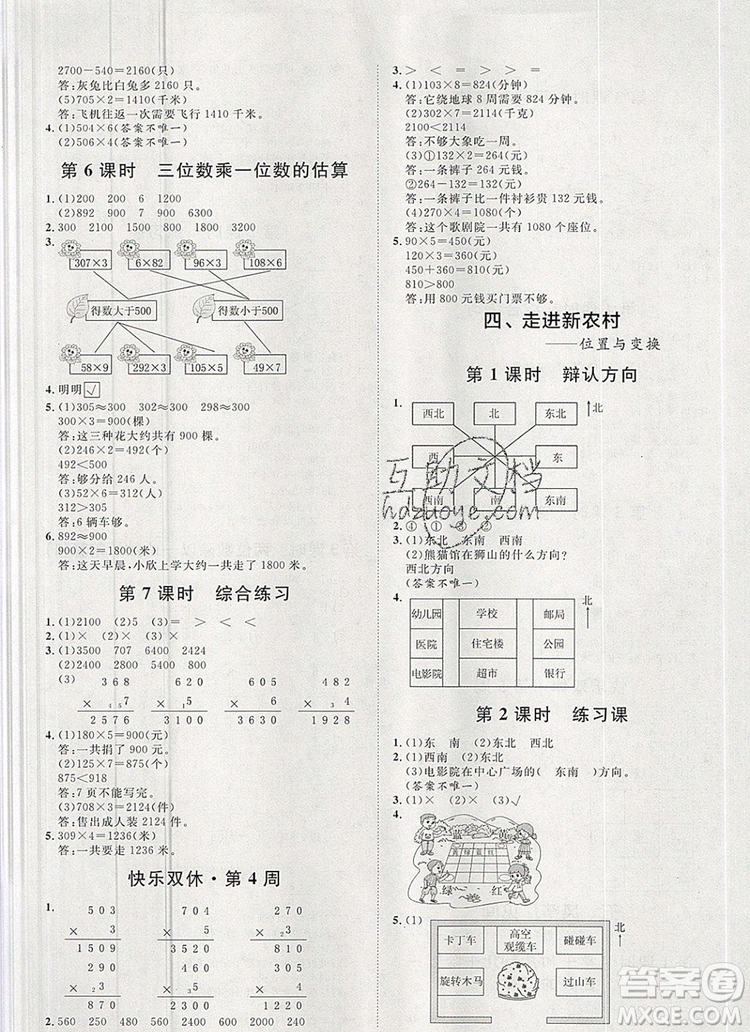 2700-540=2160(只)
答:灰兔比白兔多 2160 只。
(5)705×2=1410(千米)
答:飞机往返一次需要飞行 1410 千米。
4.(1)504×6(答案不唯一)
(2)506×4(答案不唯一)
第 6 课时 三位数乘一位数的估算
1.(1)200 200 6 1200
(2)892 900 7 900 6300
2.300 2100 1500 1800 3200
3.
307×3 6×82 96×3 108×6
得数大于500 得数小于500
58×9 292×3 154×3 49×7
4.明明√
5.(1)305≈300 302≈300 298≈300
300×3=900(棵)
答:这三种花大约共有 900 棵。
(2)246×2=492(个)
492<500
答:够分给 246 人。
(3)52×6=312(个)
312>305
答:6 辆车够。
6.892≈900
900×2=1800(米)
答:这天早晨,小欣上学大约一共走了 1800 米。
第 7 课时 综合练习
1.(1)2100 (2)5 (3)= > < <
2.(1)× (2)× (3)√
3.(1)3500 707 6408 2424
(2)2400 2800 4200 4000
(3) 368 620 605 482
× 457 × 14 × 36 × 34
2576 2480 3630 1928
4.(1)180×5=900(个)
答:一共捐了 900 个。
(2)125×7=875(个)
875<918
答:7 页不能写完。
(3)708×3=2124(件)
答:售出成人装 2124 件。
5.309×4=1236(米)
答:一共要走 1236 米。
快乐双休·第 4 周
1.
503 704 240
× 3 × 2 × 8
1509 1408 1920
290 105 290
× 23 × 6 × 3
870 630 870
2.560 250 640 2000 2800
3.> < = > <
4.(1)103×8=824(分钟)
答:它绕地球 8 周需要 824 分钟。
(2)302×7=2114(千克)
2100<2114
答:不够大象吃一周。
(3)①132×2=264(元)
答:一条裤子 264 元钱。
②264-132=132(元)
答:一条裤子比一件衬衫贵 132 元钱。
(4)270×4=1080(个)
答:这个歌剧院一共有 1080 个座位。
5.90×5=450(元)
120×3=360(元)
450+360=810(元)
810>800
答:用 800 元钱买门票不够。
四、走进新农村
——位置与变换
第 1 课时 辩认方向
1.
西北 北 东北 北
西 东
西南 南 东南
2.④ ① ③ ②
3.(1)东北 东南 西南
(2)熊猫馆在狮山的什么方向?
西北方向
(答案不唯一)
4.
幼儿园 学校 邮局 北
医院 住宅楼 公园
电影院 超市 银行
第 2 课时 练习课
1.(1)东 南 (2)东北 西北
2.(1)西南 (2)东北
(3)电影院在中心广场的( 东南 )方向。
(答案不唯一)
3.(1)× (2)× (3)√
4.
蓝 黄
黄绿蓝红
绿 红
5.(1) 北
卡丁车 高空观缆车 碰碰车
旋转木马 过山车
互助文档
hdzuoye.com
答案圈
MXQE.COM